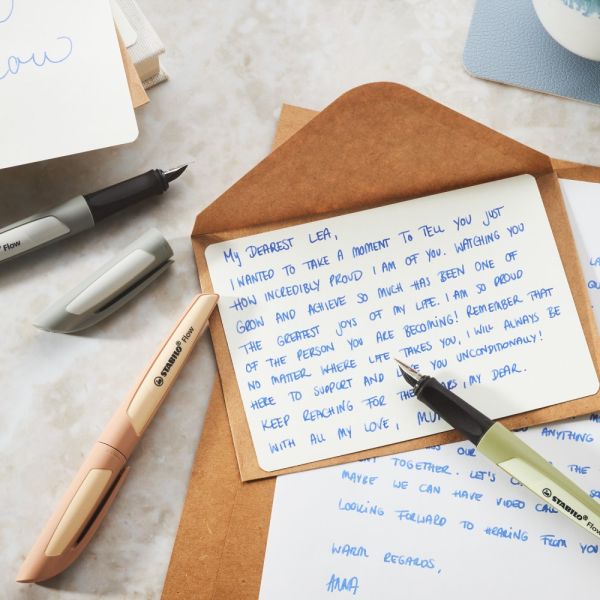 Flow
MY DEAREST LEA,
I WANTED TO TAKE A MOMENT TO TELL YOU JUST
HOW INCREDIBLY PROUD I AM OF YOU. WATCHING YOU
GROW AND ACHIEVE SO MUCH HAS BEEN ONE OF
THE GREATEST JOYS OF MY LIFE. I AM SO PROUD
OF THE PERSON YOU ARE BECOMING! REMEMBER THAT
NO MATTER WHERE LIFE TAKES YOU, I WILL ALWAYS BE
HERE TO SUPPORT AND YOU UNCONDITIONALLY!
KEEP REACHING FOR THE , MY DEAR.
WITH ALL MY LOVE,
STABILO Flow
STABILO Flow
ANYTHING
OUR THE
TOGETHER. LET'S
MAYBE WE CAN HAVE VIDEO
LOOKING FORWARD TO HEARING FROM YOU
WARM REGARDS,
ANNA